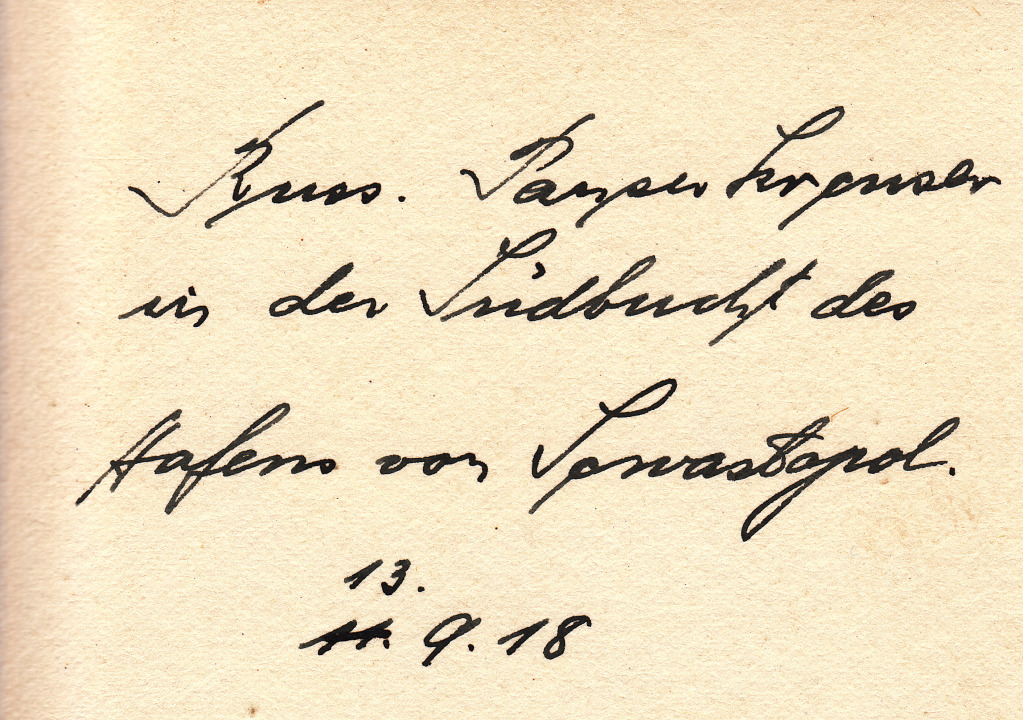 Russ. Panzerkreuzer
in der Südbucht des
Hafens von Sewastopol.
13.
11. 9. 18